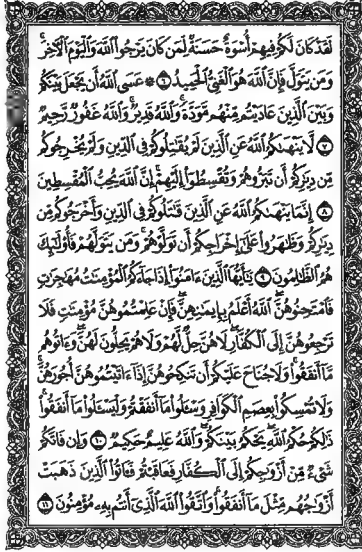 لَقَدْ كَانَ لَكُمْ فِيهِمْ أُسْوَةٌ حَسَنَةٌ لِّمَن كَانَ يَرْجُوا۟ ٱللَّهَ وَٱلْيَوْمَ ٱلْءَاخِرَ ۚ
وَمَن يَتَوَلَّ فَإِنَّ ٱللَّهَ هُوَ ٱلْغَنِىُّ ٱلْحَمِيدُ ٦ ۞ عَسَى ٱللَّهُ أَن يَجْعَلَ بَيْنَكُمْ
وَبَيْنَ ٱلَّذِينَ عَادَيْتُم مِّنْهُم مَّوَدَّةً ۚ وَٱللَّهُ قَدِيرٌ ۚ وَٱللَّهُ غَفُورٌ رَّحِيمٌ
٧ لَّا يَنْهَىٰكُمُ ٱللَّهُ عَنِ ٱلَّذِينَ لَمْ يُقَٰتِلُوكُمْ فِى ٱلدِّينِ وَلَمْ يُخْرِجُوكُم
مِّن دِيَٰرِكُمْ أَن تَبَرُّوهُمْ وَتُقْسِطُوٓا۟ إِلَيْهِمْ ۚ إِنَّ ٱللَّهَ يُحِبُّ ٱلْمُقْسِطِينَ
٨ إِنَّمَا يَنْهَىٰكُمُ ٱللَّهُ عَنِ ٱلَّذِينَ قَٰتَلُوكُمْ فِى ٱلدِّينِ وَأَخْرَجُوكُم مِّن
دِيَٰرِكُمْ وَظَٰهَرُوا۟ عَلَىٰٓ إِخْرَاجِكُمْ أَن تَوَلَّوْهُمْ ۚ وَمَن يَتَوَلَّهُمْ فَأُو۟لَٰٓئِكَ
هُمُ ٱلظَّٰلِمُونَ ٩ يَٰٓأَيُّهَا ٱلَّذِينَ ءَامَنُوٓا۟ إِذَا جَآءَكُمُ ٱلْمُؤْمِنَٰتُ مُهَٰجِرَٰتٍ
فَٱمْتَحِنُوهُنَّ ۖ ٱللَّهُ أَعْلَمُ بِإِيمَٰنِهِنَّ ۖ فَإِنْ عَلِمْتُمُوهُنَّ مُؤْمِنَٰتٍ فَلَا
تَرْجِعُوهُنَّ إِلَى ٱلْكُفَّارِ ۖ لَا هُنَّ حِلٌّ لَّهُمْ وَلَا هُمْ يَحِلُّونَ لَهُنَّ ۖ وَءَاتُوهُم
مَّآ أَنفَقُوا۟ ۚ وَلَا جُنَاحَ عَلَيْكُمْ أَن تَنكِحُوهُنَّ إِذَآ ءَاتَيْتُمُوهُنَّ أُجُورَهُنَّ ۚ
وَلَا تُمْسِكُوا۟ بِعِصَمِ ٱلْكَوَافِرِ وَسْـَٔلُوا۟ مَآ أَنفَقْتُمْ وَلْيَسْـَٔلُوا۟ مَآ أَنفَقُوا۟ ۚ
ذَٰلِكُمْ حُكْمُ ٱللَّهِ ۖ يَحْكُمُ بَيْنَكُمْ ۚ وَٱللَّهُ عَلِيمٌ حَكِيمٌ ١٠ وَإِن فَاتَكُمْ
شَىْءٌ مِّنْ أَزْوَٰجِكُمْ إِلَى ٱلْكُفَّارِ فَعَاقَبْتُمْ فَـَٔاتُوا۟ ٱلَّذِينَ ذَهَبَتْ
أَزْوَٰجُهُم مِّثْلَ مَآ أَنفَقُوا۟ ۚ وَٱتَّقُوا۟ ٱللَّهَ ٱلَّذِىٓ أَنتُم بِهِۦ مُؤْمِنُونَ ١١